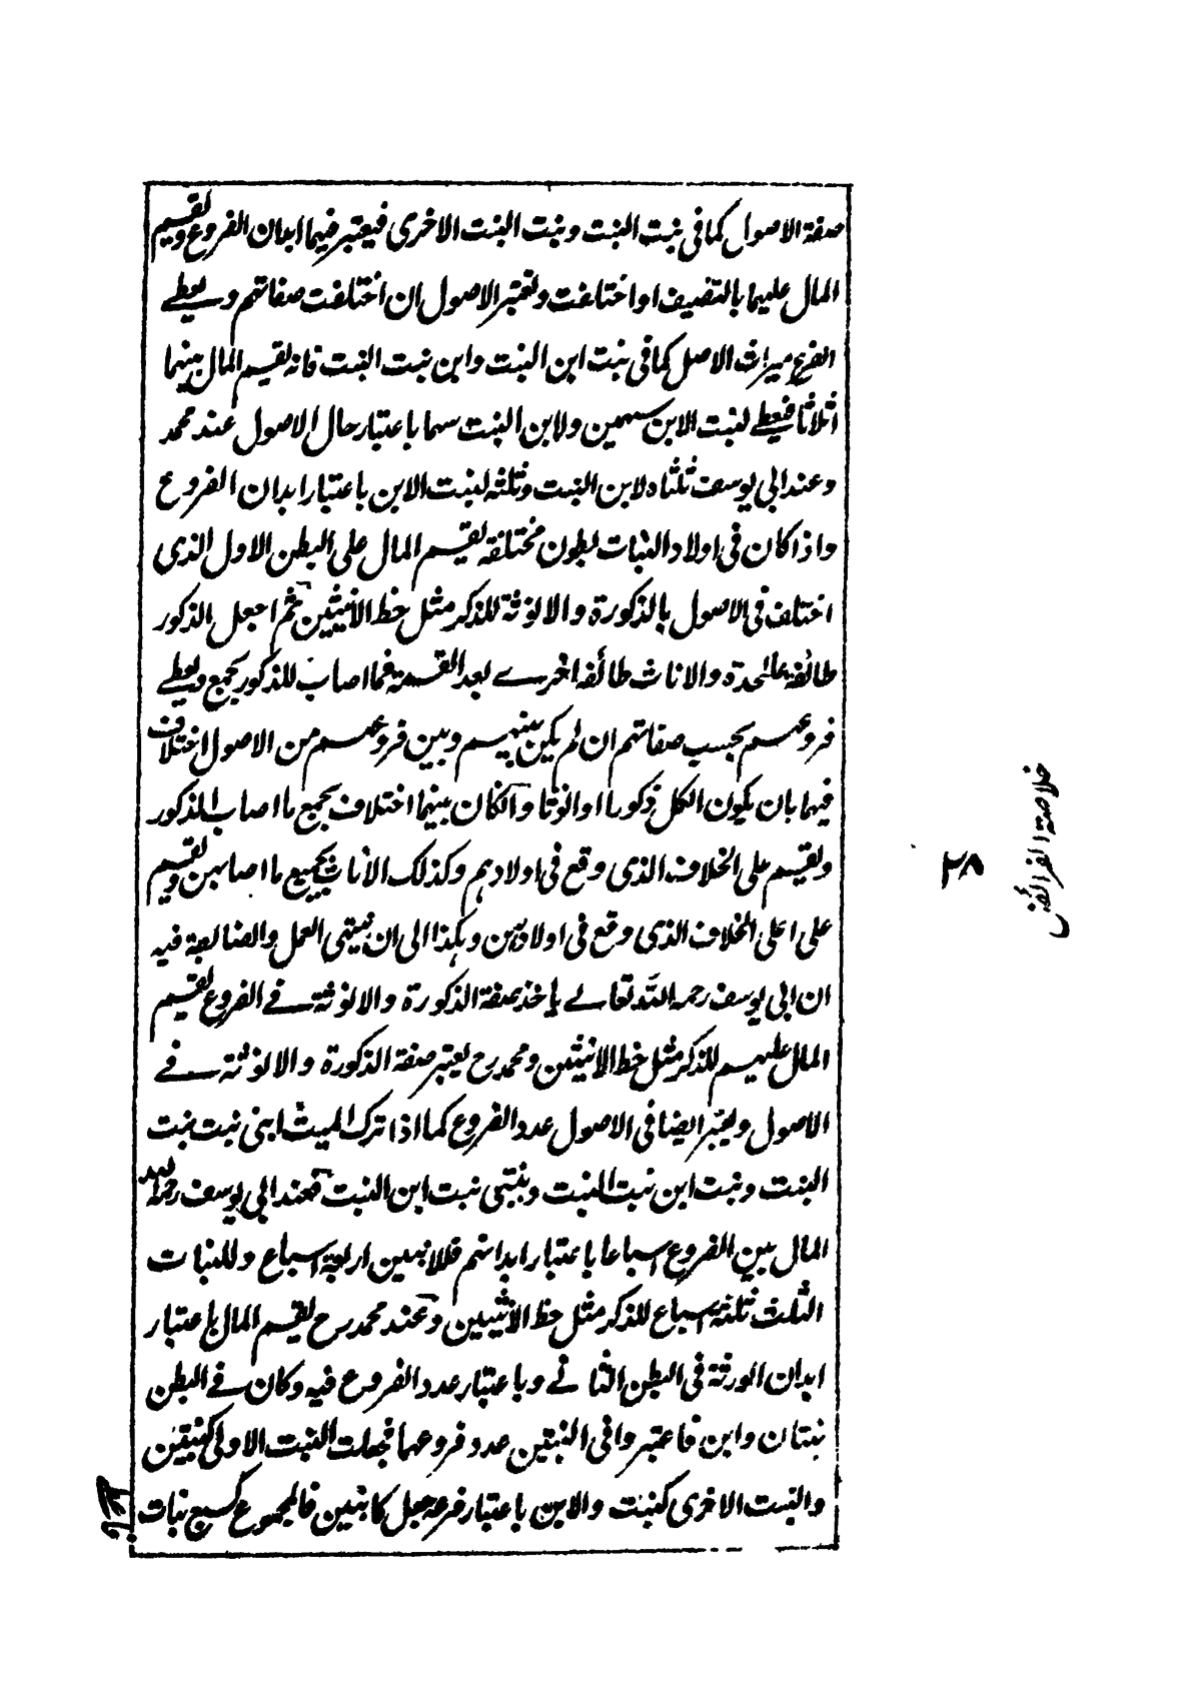 صفة الاصول كما فى بنت البنت وبنت البنت الاخرى فيعتبر فيهما ابدان الفروع ويقسم
المال عليهما بالتنصيف او اختلفت ويعتبر الاصول ان اختلفت صفاتهم ويعطے
الفرع ميراث الاصل كما فى بنت ابن البنت وابن بنت البنت فانه يقسم المال بينهما
اثلاثا فيعطے لبنت الابن سهمين ولابن البنت سهما باعتبار حال الاصول عند محمد
وعند ابى يوسف ثلثاه لابن البنت وثلثه لبنت الابن باعتبار ابدان الفروع
واذا كان فى اولاد البنات بطون مختلفة يقسم المال على البطن الاول الذى
اختلف فى الاصول بالذكورة والانوثة للذكر مثل حظ الانثيين ثم اجعل الذكور
طائفة علىٰحدة والاناث طائفة اخرے بعد القسمة فما اصاب للذكور يجمع ويعطے
فروعهم بحسب صفاتهم ان لم يكن بينهم وبين فروعهم من الاصول اختلاف
فيهما بان يكون الكل ذكورا او انوثا وان كان بينهما اختلاف يجمع ما اصاب الذكور
ويقسم على الخلاف الذى وقع فى اولادهم وكذلك الاناث يجمع ما اصابهن ويقسم
على اعلى الخلاف الذى وقع فى اولادهن وهكذا الى ان ينتهى العمل والضابطة فيه
ان ابى يوسف رحمه الله تعالے ياخذ بصفة الذكورة والانوثة فے الفروع يقسم
المال عليهم للذكر مثل حظ الانثيين ومحمد رح يعتبر صفة الذكورة والانوثة فے
الاصول ويعتبر ايضا فى الاصول عدد الفروع كما اذا ترك الميت ابنى بنت بنت
البنت وبنت ابن بنت البنت وبنتى بنت ابن البنت فعند ابى يوسف رحمه الله
المال بين الفروع اسباعا باعتبار ابدانهم فللابنين اربعة اسباع وللبنات
الثلث ثلثة اسباع للذكر مثل حظ الانثيين وعند محمد رح يقسم المال باعتبار
ابدان الورثة فى البطن الثانے وباعتبار عدد الفروع فيه وكان فے البطن
بنتان وابن فاعتبروا فى البنتين عدد فروعهما فجعلت البنت الاولى كبنتين
والبنت الاخرى كبنت والابن باعتبار فرعه جعل كابنين فالمجموع كسبع بنات
خلاصة الفرائض
۲۸